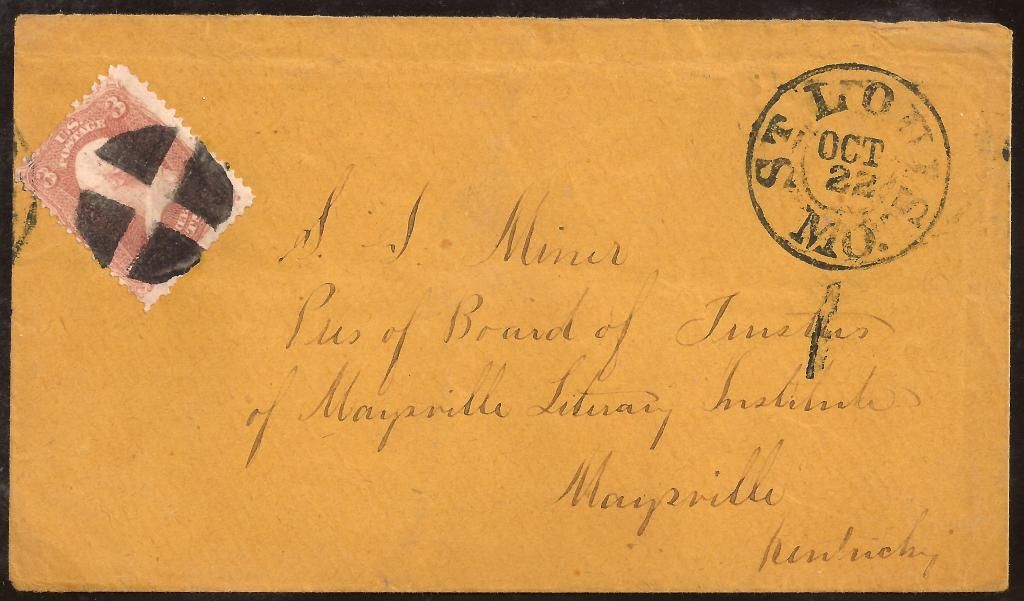 3 U.S. POSTAGE 3
ST LOUIS
OCT
22
MO.
S. S. Miner
Pres of Board of Trustees
of Maysville Literary Institute
Maysville
Kentucky